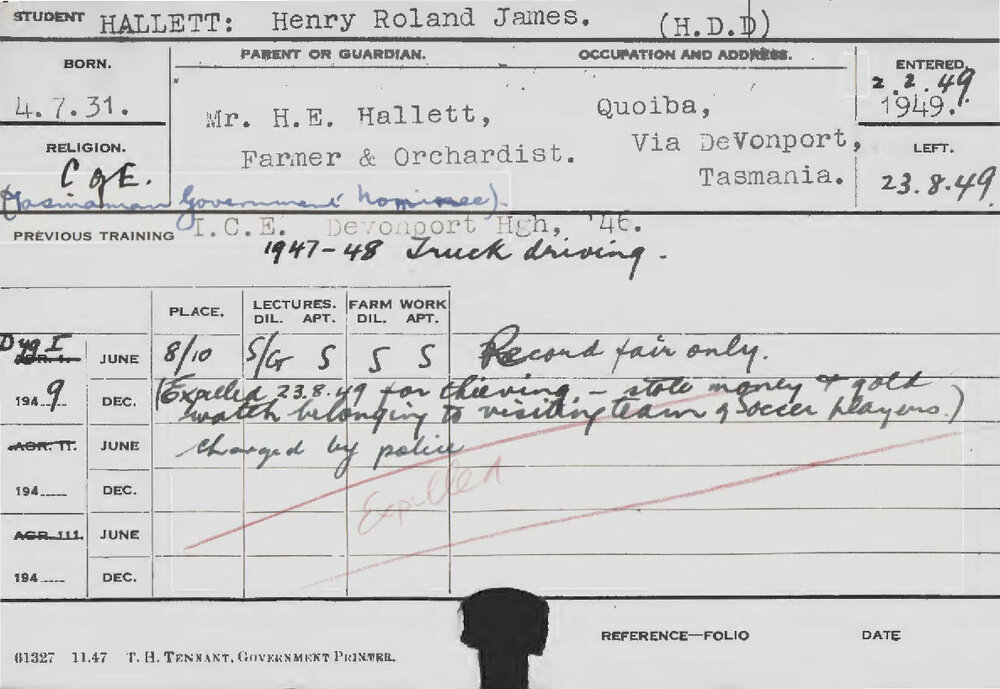 STUDENT HALLETT: Henry Roland James. (H.D.D)
BORN. PARENT OR GUARDIAN. OCCUPATION AND ADDRESS. ENTERED.
2.2.49
4.7.31. Mr. H.E. Hallett, Quoiba, 1949.
RELIGION. Farmer & Orchardist. Via DeVonport, LEFT.
C of E. Tasmania. 23.8.49
(Tasmanian Government Nominee).
PREVIOUS TRAINING I.C.E. Devonport Hgh, '46.
1947-48 Truck driving.
PLACE. LECTURES. FARM WORK
DIL. APT. DIL. APT.
Dyg I
AGR. I. JUNE 8/10 S/G S S S Record fair only.
1949 DEC. (Expelled 23.8.49 for thieving - stole money & gold
watch belonging to visiting team of Soccer players.)
AGR. II. JUNE charged by police
Expelled
194 DEC.
AGR. III. JUNE
194 DEC.
REFERENCE—FOLIO DATE
61327 11.47 T. H. TENNANT, GOVERNMENT PRINTER.